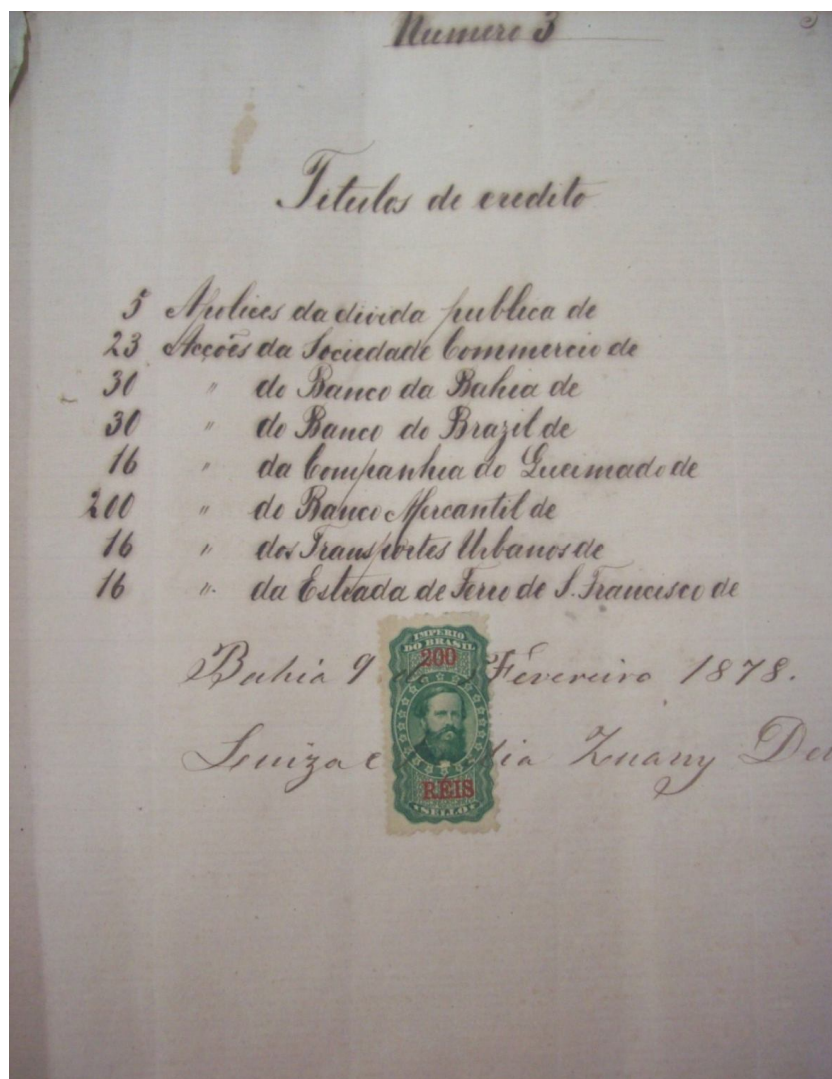 Numero 3
Titulos de credito
5 Apolices da divida publica de
23 Acções da Sociedade Commercio de
30 " do Banco da Bahia de
30 " do Banco do Brazil de
16 " da Companhia do Queimado de
200 " do Banco Mercantil de
16 " dos Transportes Urbanos de
16 " da Estrada de Ferro de S. Francisco de
IMPERIO
DO BRASIL
200
Bahia 9 de Fevereiro 1878.
Luiza
RÉIS
SELLO